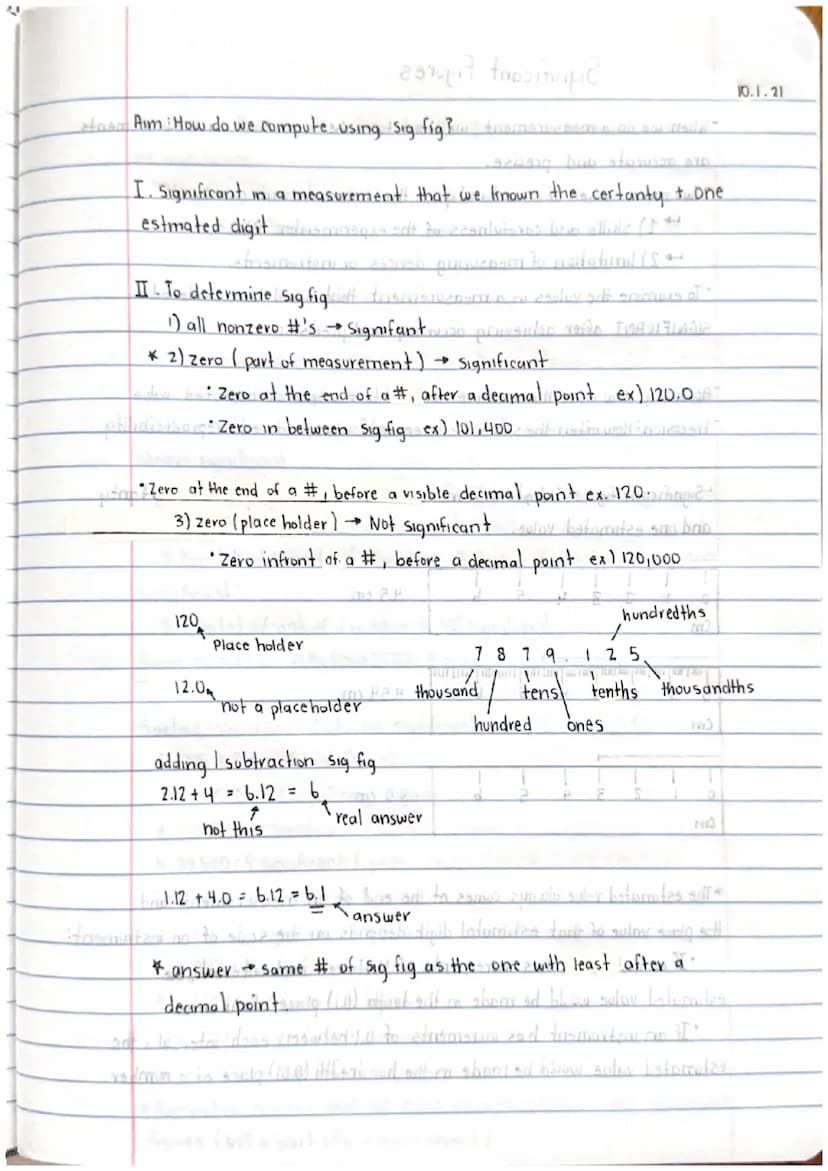 10.1.21
Aim: How do we compute using sig fig?
I. Significant in a measurement that we known the certanty + one
estmated digit
II. To determine sig fig
1) all nonzero #'s → Signifant
* 2) zero (part of measurement) → significant
• Zero at the end of a #, after a decimal point ex) 120.0
• Zero in between sig fig ex) 101,400
• Zero at the end of a #, before a visible decimal point ex. 120.
3) zero (place holder) → Not significant
• Zero infront of a #, before a decimal point ex) 120,000
120
Place holder
12.0
not a placeholder
hundredths
7 8 7 9 . 1 2 5
thousand tens tenths thousandths
hundred ones
adding / subtraction sig fig
2.12 + 4 = 6.12 = 6
not this
real answer
1.12 + 4.0 = 6.12 = 6.1
answer
* answer → same # of sig fig as the one with least after a
decimal point.